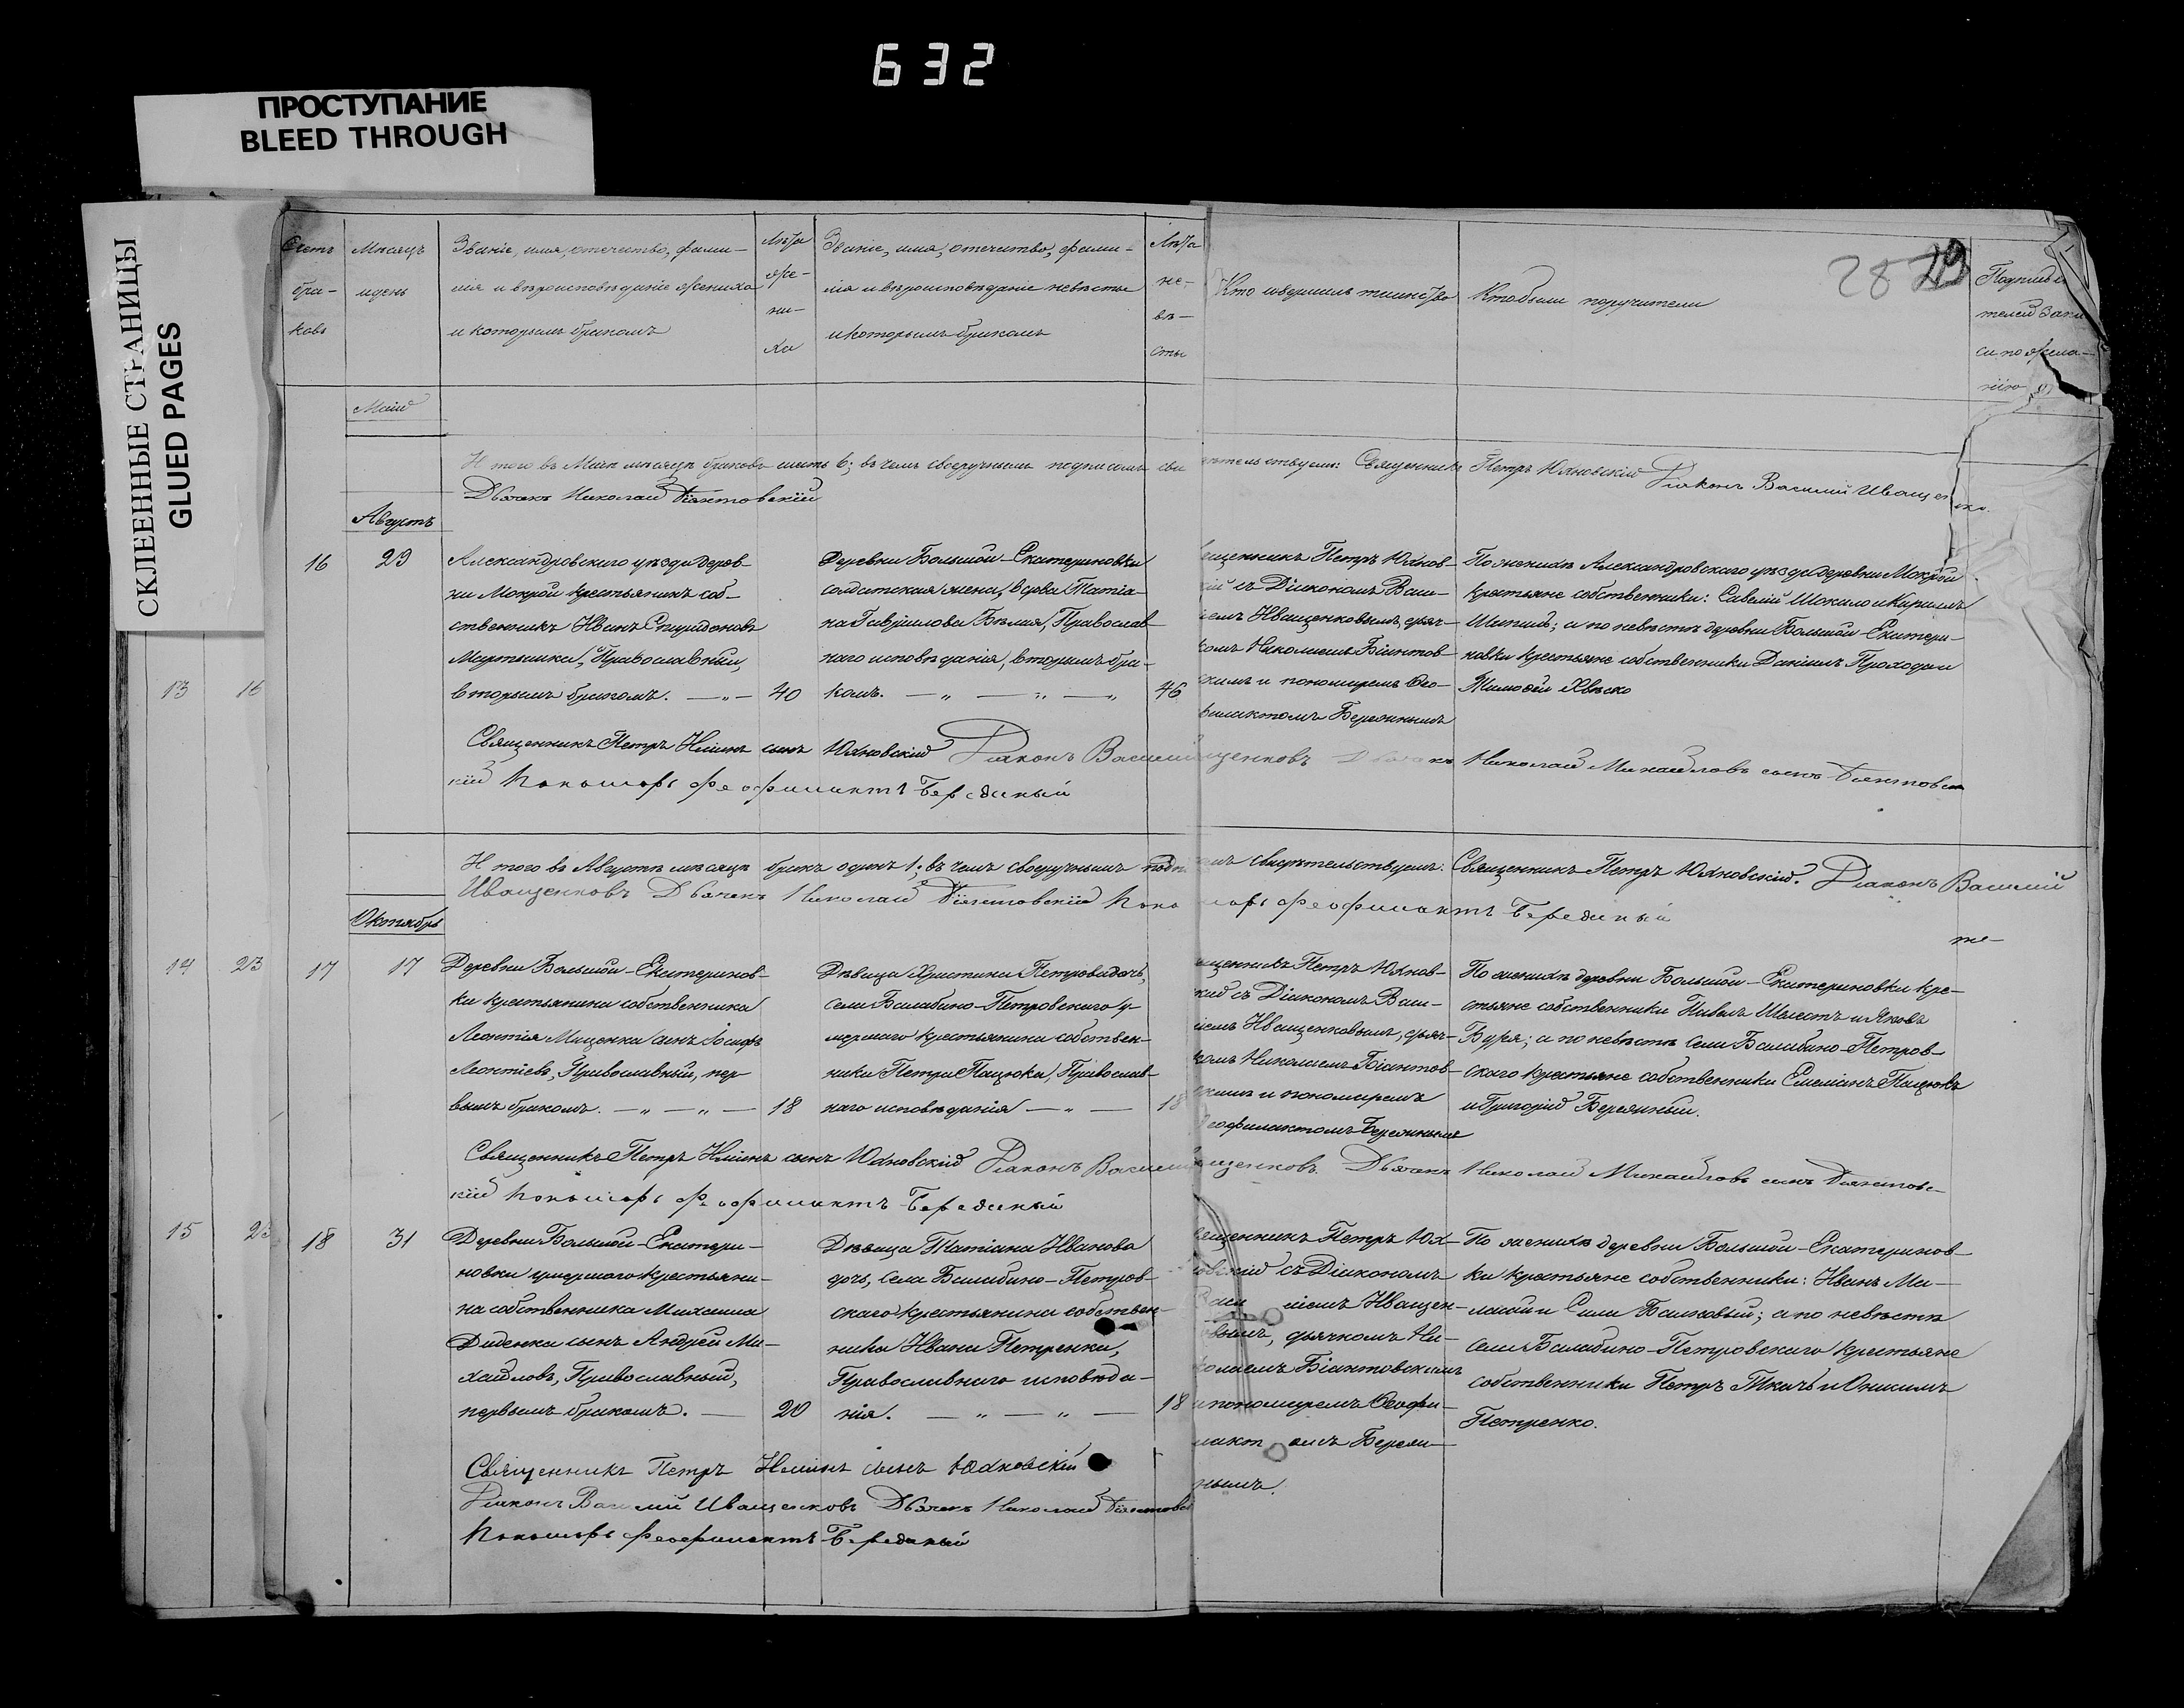 632
ПРОСТУПАНИЕ
BLEED THROUGH
СКЛЕЕННЫЕ СТРАНИЦЫ
GLUED PAGES
28 29
Счетъ бра- ковъ
Мѣсяцъ и день
Званіе, имя, отечество, фами-
лія и вѣроисповѣданіе жениха
и которымъ бракомъ
Лѣта же- ни- ха
Званіе, имя, отечество, фами-
лія и вѣроисповѣданіе невѣсты
и которымъ бракомъ
Лѣта не- вѣ- сты
Кто совершилъ таинство
Кто были поручители
Подпись
телей запи
си по жела-
нію
Маій
Итого въ Маѣ мѣсяцѣ браковъ шесть 6; въ чемъ своеручнымъ подписомъ сви
ѣтельствуемъ: Священникъ Петръ Юхновскій Діаконъ Василій Иващен
Дьячекъ Николай Біантовскій
Августъ
16 29
Александровскаго уѣзда дерев-
ни Мокрой крестьянинъ соб-
ственникъ Иванъ Спиридоновъ
Мартышка, Православный,
вторымъ бракомъ. 40
Деревни Большой-Екатериновки
солдатская жена, вдова Татіа-
на Гавріилова Бѣлая, Православ-
наго исповѣданія, вторымъ бра-
комъ. 46
ященникъ Петръ Юхнов-
кій съ Діакономъ Васи-
іемъ Иващенковымъ, дьяч-
комъ Николаемъ Біантов-
скимъ и пономаремъ Ѳео-
филактомъ Береяинымъ
По женихѣ Александровскаго уѣзда деревни Мокрой
крестьяне собственники: Савелій Шокало и Карпъ
Шапилъ; а по невѣстѣ деревни Большой-Екатери-
новки крестьяне собственники Даніилъ Проходъ и
Тимоѳей Хвѣско
Священникъ Петръ Иліинъ сынъ Юхновскій Діаконъ Василій
щенковъ Дьячекъ Николай Михайловъ сынъ Біантовс
кій Пономарь Феофилактъ
13 16
Итого въ Августѣ мѣсяцѣ бракъ одинъ 1; въ чемъ своеручнымъ подпи
омъ свидѣтельствуемъ: Священникъ Петръ Юхновскій. Діаконъ Василій
Иващенковъ Дьячекъ Николай Біантовскій Поно
марь Феофилактъ
Октябрь
14 23
17 17
Деревни Большой-Екатеринов-
ки крестьянина собственника
Леонтія Мищенки сынъ Іосифъ
Леонтіевъ, Православный, пер
вымъ бракомъ. 18
Дѣвица Христина Петрова дочь,
села Балабино-Петровскаго у-
мершаго крестьянина собствен-
ника Петра Пацюка, Православ-
наго исповѣданія 18
ященникъ Петръ Юхнов-
кій съ Діакономъ Васи-
ліемъ Иващенковымъ, дьяч-
комъ Николаемъ Біантов-
скимъ и пономаремъ
Ѳеофилактомъ
По женихѣ деревни Большой-Екатериновки кре-
стьяне собственники Павелъ Шелестъ и Яковъ
Буря; а по невѣстѣ села Балабино-Петров-
скаго крестьяне собственники Емеліанъ Пацюкъ
и Григорій
Священникъ Петръ Иліинъ сынъ Юхновскій Діаконъ Василій
щенковъ. Дьячекъ Николай Михайловъ сынъ Біантовс-
кій Пономарь Феофилактъ
15 23
18 31
Деревни Большой-Екатери-
новки умершаго крестьяни-
на собственника Михаила
Диденка сынъ Андрей Ми-
хайловъ, Православный,
первымъ бракомъ. 20
Дѣвица Татіана Иванова
дочь, села Балабино-Петров-
скаго крестьянина собствен-
ника Ивана Петренка,
Православнаго исповѣда-
нія. 18
ященникъ Петръ Юх-
новскій съ Діакономъ
Васи ліемъ Иващен-
овымъ, дьячкомъ Ни-
колаемъ Біантовскимъ
и пономаремъ Ѳеофи-
лакт омъ
нымъ.
По женихѣ деревни Большой-Екатеринов-
ки крестьяне собственники: Иванъ Ма-
лашъ и Сила Балковый; а по невѣстѣ
села Балабино-Петровскаго крестьяне
собственники Петръ Ткачь и Онисимъ
Петренко.
Священникъ Петръ Иліинъ сынъ Юхновскій
Діаконъ Василій Иващенковъ Дьячекъ Николай Біантовс
Пономарь Феофилактъ